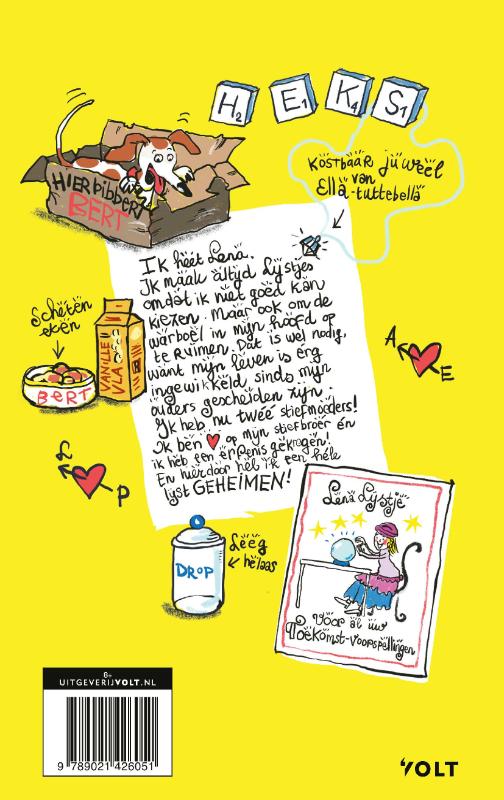 H2 E1 K4 S1
HIER bibbert
BERT
KOSTBAAR juweel
van
Ella-tuttebella
Ik heet Lena.
Ik maak altijd lijstjes
omdat ik niet goed kan
kiezen. Maar ook om de
warboel in mijn hoofd op
te ruimen. Dat is wel nodig,
want mijn leven is erg
ingewikkeld sinds mijn
ouders gescheiden zijn.
Ik heb nu twee stiefmoeders!
Ik ben ♥ op mijn stiefbroer én
ik heb een erfenis gekregen!
En hierdoor heb ik een hele
lijst GEHEIMEN!
Scheten
eten
VANILLE
VLA
BERT
A
E
L
P
Leeg
helaas
DROP
Lena Lijstje
Voor al uw
Toekomst-voorspellingen
8+
UITGEVERIJVOLT.NL
9 789021 426051
VOLT